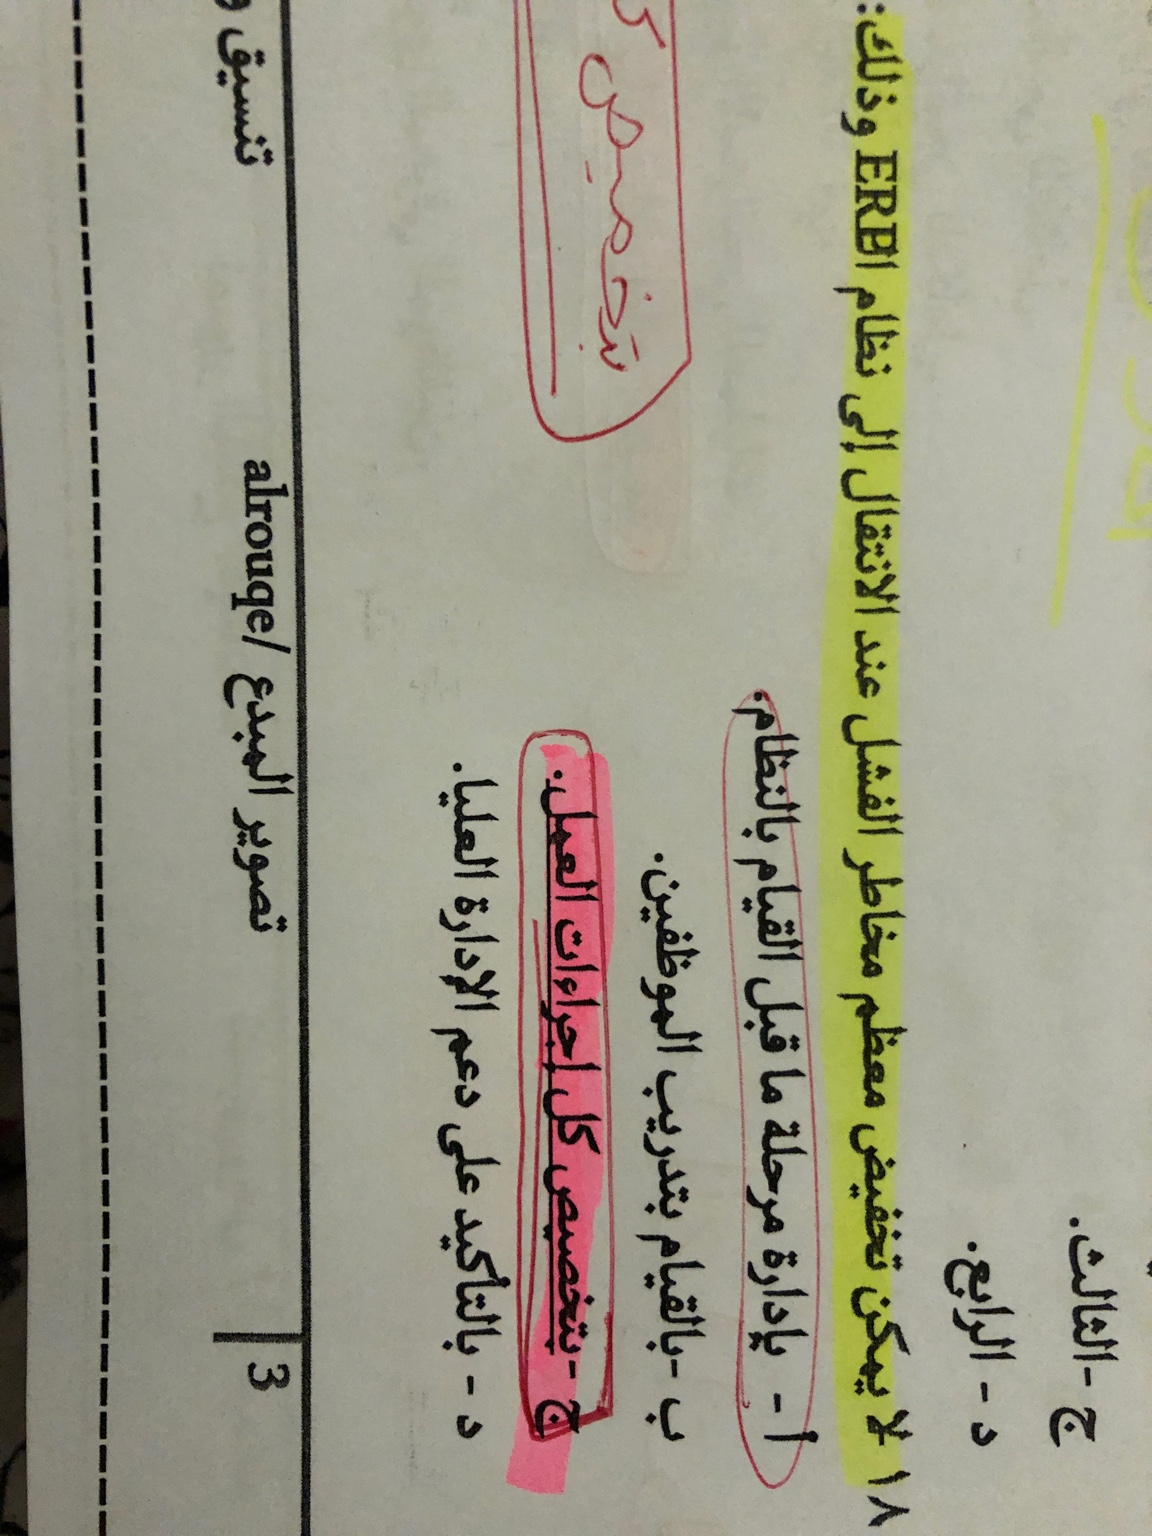 ج -الثالث.
د - الرابع.
١٨ لا يمكن تخفيض معظم مخاطر الفشل عند الانتقال إلى نظام اERB وذلك:
أ - بإدارة مرحلة ما قبل القيام بالنظام.
ب -بالقيام بتدريب الموظفين.
ج -بتخصيص كل إجراءات العمل.
تخصيص
د - بالتأكيد على دعم الإدارة العليا.
3 تصوير المبدع /alrouqe تنسيق